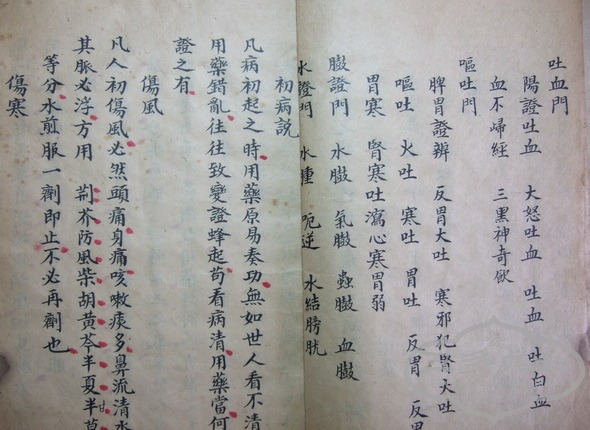 吐血門
陽證吐血 大怒吐血 吐血 吐白血
血不歸經 三黑神奇飲
嘔吐門
脾胃證辨 反胃大吐 寒邪犯腎火吐
嘔吐 火吐 寒吐 胃吐 反胃 反胃
胃寒 腎寒吐瀉心寒胃弱
臌證門 水臌 氣臌 蟲臌 血臌
水證門 水腫 呃逆 水結膀胱
初病說
凡病初起之時用藥原易奏功無如世人看不清
用藥錯亂往往致變證蜂起苟看病清用藥當何
證之有
傷風
凡人初傷風必然頭痛身痛咳嗽痰多鼻流清水
其脈必浮方用 荊芥防風柴胡黃芩半夏半甘草
等分水煎服一劑即止不必再劑也
傷寒